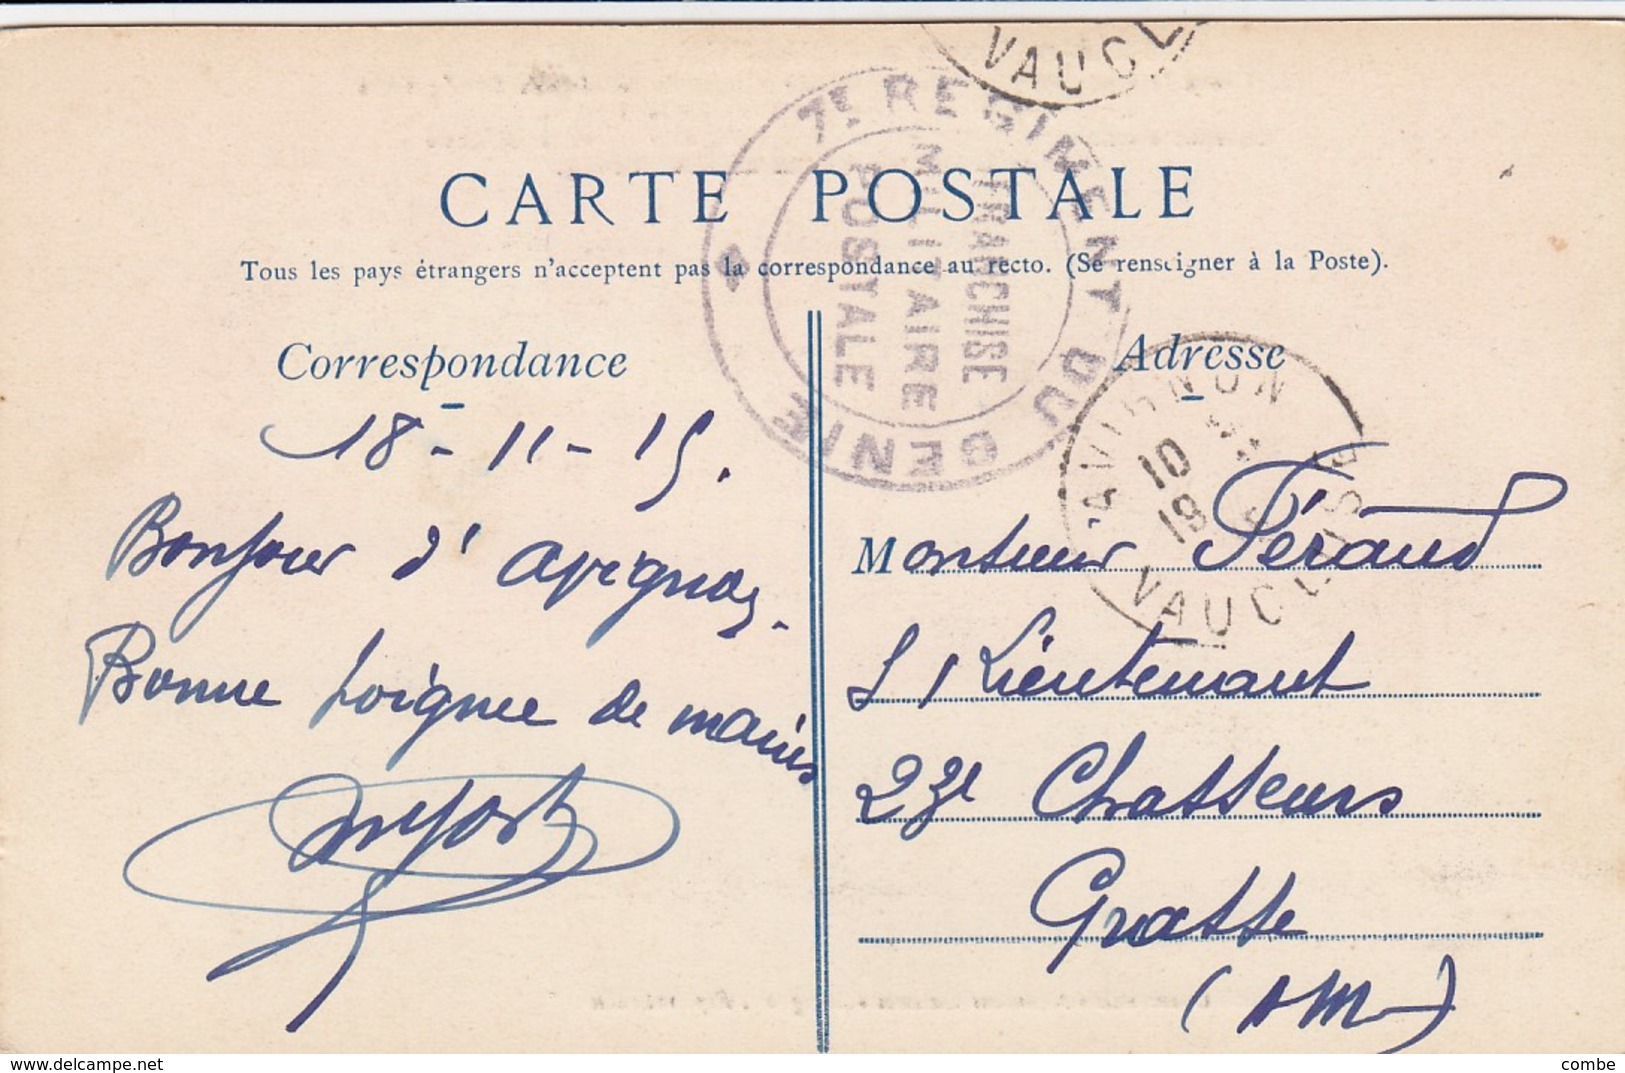 VAUCL
7E REGIMENT DU GENIE
FRANCHISE
MILITAIRE
POSTALE
CARTE POSTALE
Tous les pays étrangers n'acceptent pas la correspondance au recto. (Se renseigner à la Poste).
Correspondance
18-11-15.
Bonjour d'avignon.
Bonne poignee de mains
Adresse
AVIGNON
10
19
VAUCLUSE
Monsieur Féraud
S/Lieutenant
23e Chasseurs
Grasse
(AM)
delcampe.net
combe